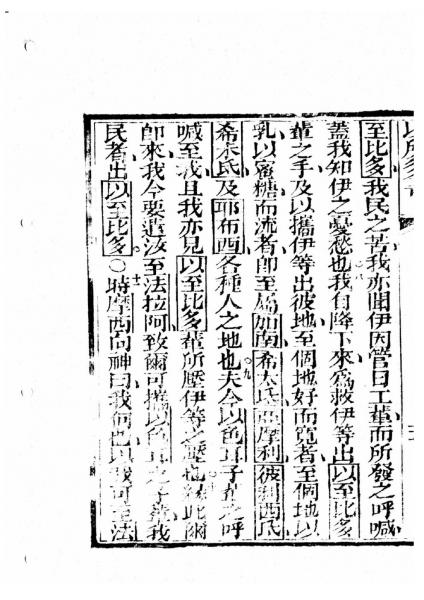 至比多我民之苦我亦聞伊因管日工輩而所發之呼喊
蓋我知伊之憂愁也我自降下來為救伊等出以至比多
輩之手及以攜伊等出彼地至個地好而寬者至個地以
乳以蜜糖而流者即至屬加南希太氏亞摩利彼利西氏
希未氏及耶布西各種人之地也○九夫今以色耳子輩之呼
喊至我且我亦見以至比多輩所壓伊等之壓也○十緣此爾
即來我今要遣汝至法拉阿致爾可攜以色耳之子輩我
民者出以至比多○十一時摩西向神曰我何也以我可至法